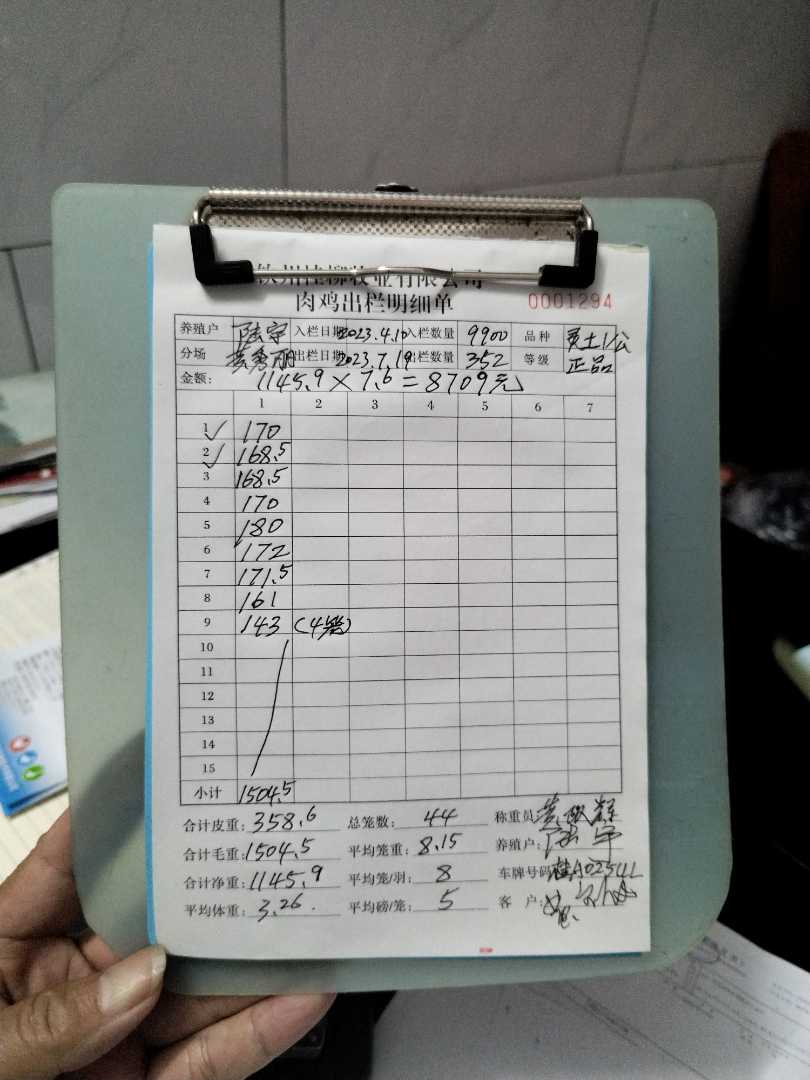 钦州桂柳牧业有限公司
肉鸡出栏明细单 0001294
养殖户 陆宇 入栏日期 2023.4.10 入栏数量 9900 品种 灵土1公
分场 黄秀丽 出栏日期 2023.7.19 出栏数量 352 等级 正品
金额: 1145.9×7.6=8709元
1 2 3 4 5 6 7
1 170
2 168.5
3 168.5
4 170
5 180
6 172
7 171.5
8 161
9 143 (4笼)
10
11
12
13
14
15
小计 1504.5
合计皮重: 358.6 总笼数: 44 称重员:
合计毛重: 1504.5 平均笼重: 8.15 养殖户: 陆宇
合计净重: 1145.9 平均笼/羽: 8 车牌号码: 桂A02541
平均体重: 3.26 平均磅/笼: 5 客户: